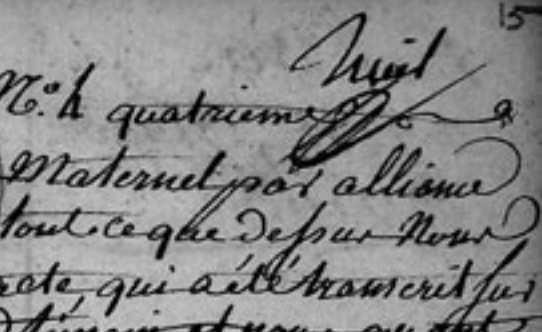 15
Nuil
N.o 4 quatrieme
Maternel par alliance
tout ce que dessus Nous
acte, qui a été transcrit sur